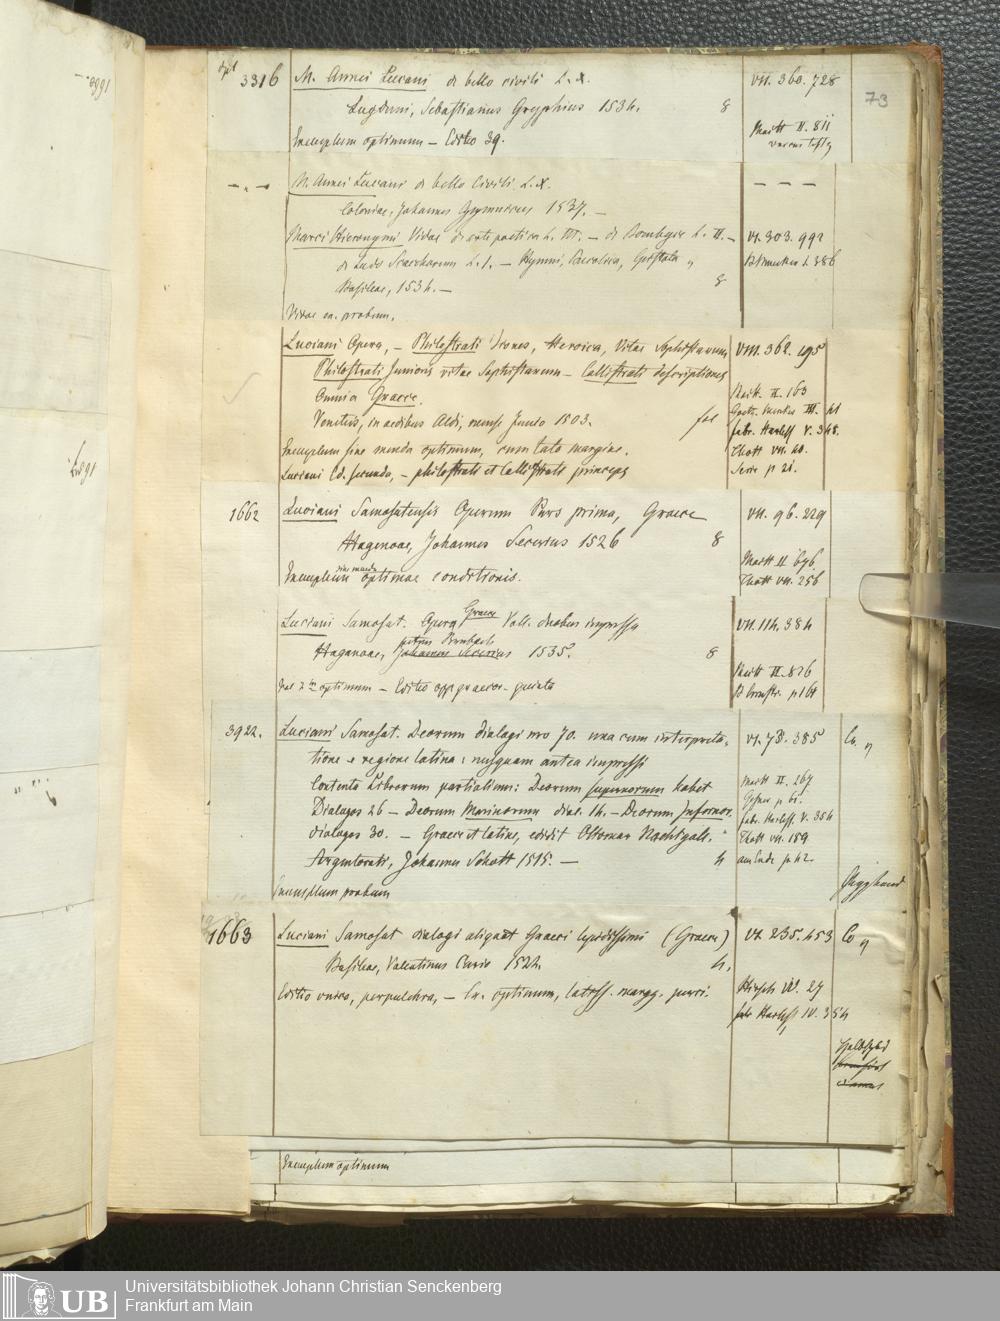 73
dpl 3316 M. Annei Lucani de bello civili L. X. VII. 360. 728
Lugduni, Sebastianus Gryphius 1534. 8
Maitt II. 811
Exemplum optimum – Editio 39.
M. Annei Lucani de bello Civili L. X.
Coloniae, Johannes Gymnicus 1537. –
Marci Hieronymi Vidae de arte poetica L. III. – de Bombyce L. II. – VI. 303. 992
de Ludo Scacchorum L. 1. – Hymni, Bucolica, Epistola
Basileae, 1534. – 8
Vidae ex. probum.
Luciani Opera, – Philostrati Icones, Heroica, Vitae Sophistarum VIII. 362. 195
Philostrati Junioris vitae Sophistarum – Callistrati descriptiones
Omnia Graece. Maitt. II. 163
Venetiis, in aedibus Aldi, mense Junio 1503. fol
fabr. Harless V. 348.
Exemplum sine menda optimum, cum lato margine. Thott VII.
Luciani Ed. secunda, – philostrati et Callistrati princeps Serie p 21.
1662 Luciani Samosatensis Operum Pars prima, Graece VII. 96. 229
Hagenoae, Johannes Secerius 1526 8
Maitt II 676.
Exemplum sine menda optimae conditionis. Thott VII. 256
Luciani Samosat. Opera Graece Voll. duobus impressa VII. 114. 384
Haganoae, petrus Brubach Johannes Secerius 1535. 8
Maitt II. 826
optimum – Editio opp graecor. quinta
3922. Luciani Samosat. Deorum dialogi nro 70. una cum interpreta- VI. 73. 385
tione e regione latina: nusquam antea impressi
Contenta Librorum partialium: Deorum supernorum habet Maitt II. 267
Dialogos 26 – Deorum Marinorum dial. 14. – Deorum Infernor. Gesner p 61.
fabr. Harless. V. 354
dialogos 30. – Graece et latine, edidit Ottomar Nachtgall. Thott VII. 159
Argentorati, Johannes Schott 1515. – 4
Exemplum probum
1663 Luciani Samosat dialogi aliquot Graeci lepidissimi (Graece) VI. 235. 453
Basileae, Valentinus Curio 1522. 4.
Editio unica, perpulchra, – Ex. optimum, latiss. margg. puri. Hirsch III. 27
fabr Harless IV. 354
Exemplum optimum
UB
Universitätsbibliothek Johann Christian Senckenberg
Frankfurt am Main